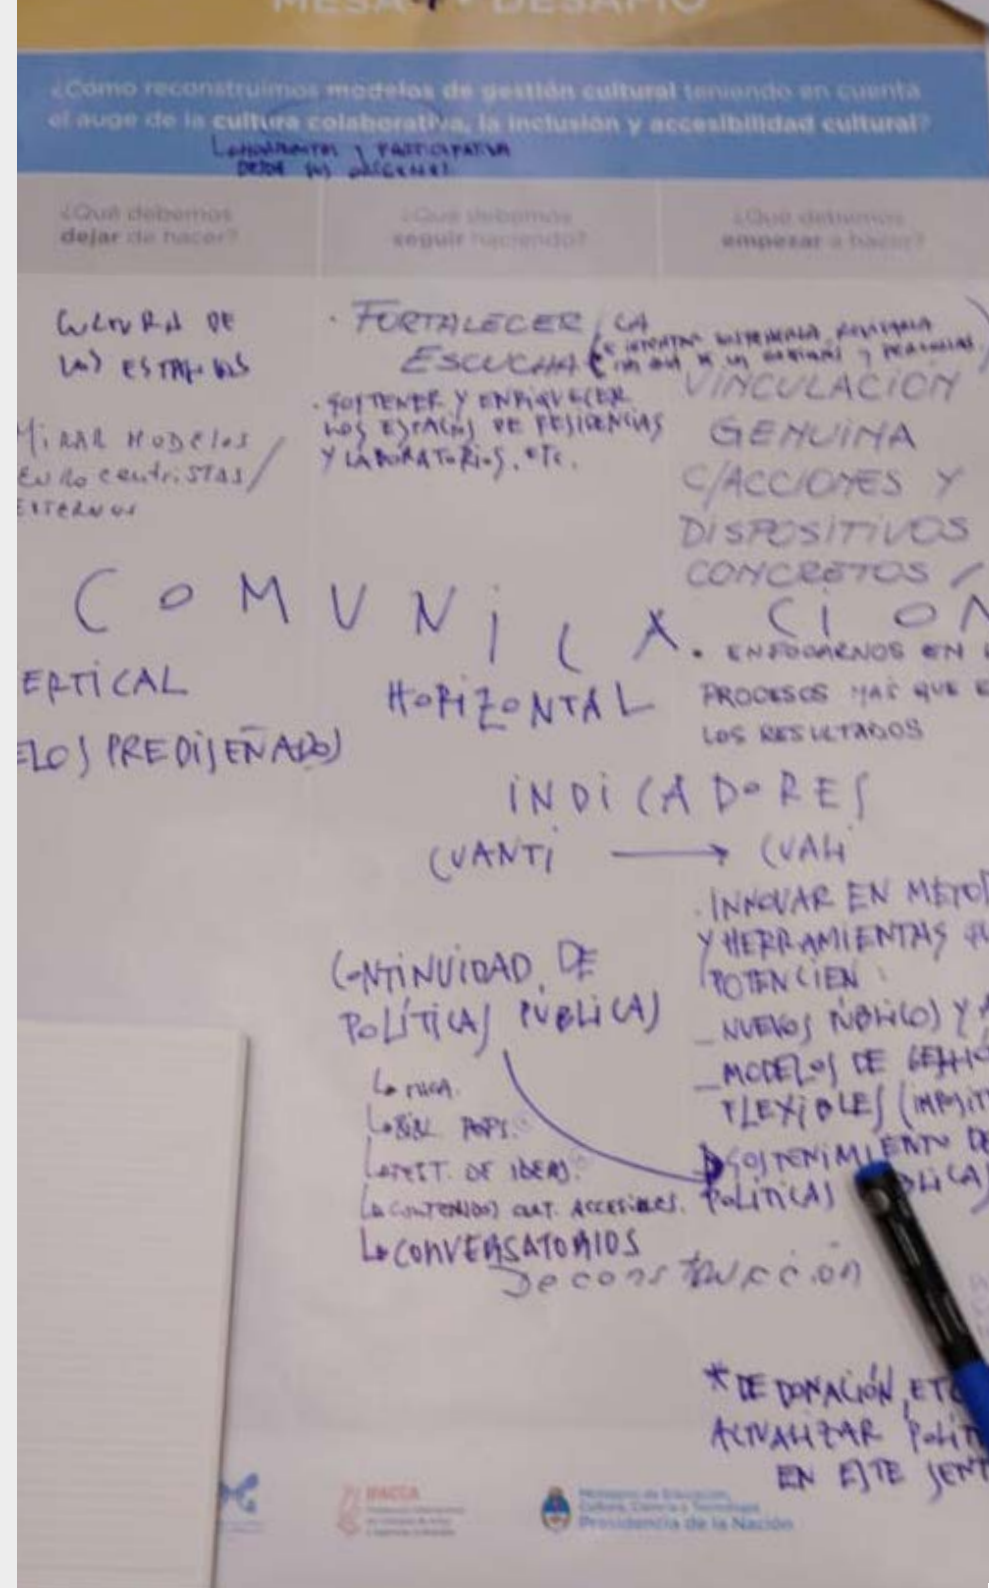 MESA DESAFÍO
¿Cómo reconstruimos modelos de gestión cultural teniendo en cuenta
el auge de la cultura colaborativa, la inclusión y accesibilidad cultural?
y PARTICIPATIVA
DESDE SUS ORÍGENES
¿Qué debemos
dejar de hacer?
¿Qué debemos
seguir haciendo?
¿Qué debemos
empezar a hacer?
CULTURA DE
LAS
MIRAR MODELOS
EUROCENTRISTAS/
EXTERNOS
· FORTALECER LA
ESCUCHA
· SOSTENER Y ENRIQUECER
LOS ESPACIOS DE RESIDENCIAS
Y LABORATORIOS, ETC.
VINCULACIÓN
GENUINA
C/ACCIONES Y
DISPOSITIVOS
CONCRETOS
COMUNICACIÓN
ERTICAL
ELOS PREDISEÑADOS
HORIZONTAL
· ENFOCARNOS EN
PROCESOS MAS QUE E
LOS RESULTADOS
INDICADORES
CUANTI → CUALI
· INNOVAR EN METOD
Y HERRAMIENTAS QU
POTENCIEN:
_ NUEVOS PÚBLICOS Y A
_ MODELOS DE GESTIO
FLEXIBLES
CONTINUIDAD DE
POLÍTICAS PÚBLICAS
↳ MICA.
↳ BIBL. POPS.
↳ FEST. DE IDEAS.
↳ CONTENIDOS CULT. ACCESIBLES.
↳ CONVERSATORIOS
SOSTENIMIENTO DE
POLÍTICAS BLICAS
Deconstrucción
* DE DONACIÓN, ETC
ACTUALIZAR POLÍT
EN ESTE SENT
IFACCA
Ministerio de Educación,
Cultura, Ciencia y Tecnología
Presidencia de la Nación